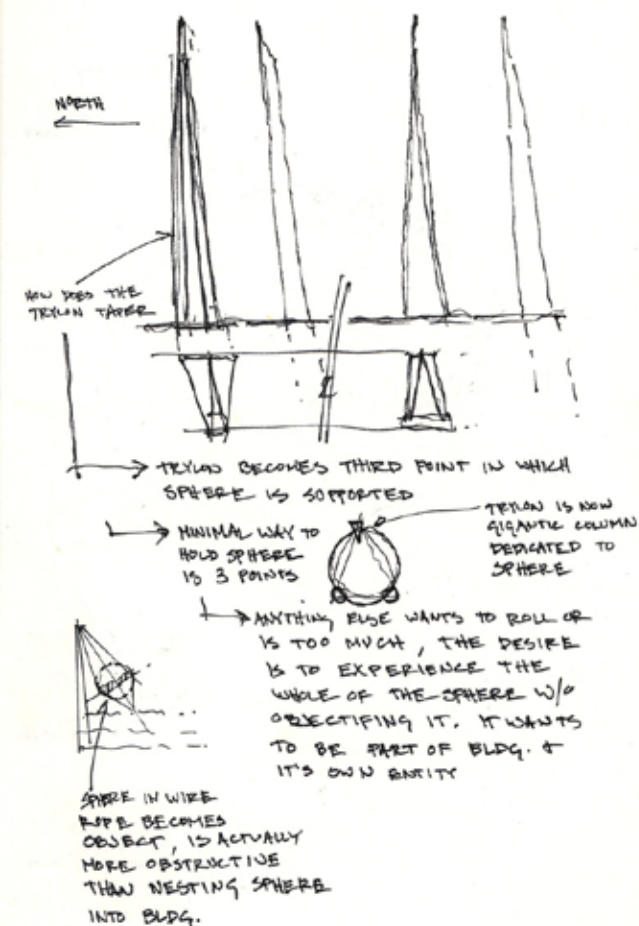 NORTH
HOW DOES THE
TRYLON TAPER
TRYLON BECOMES THIRD POINT IN WHICH
SPHERE IS SUPPORTED
MINIMAL WAY TO
HOLD SPHERE
IS 3 POINTS
TRYLON IS NOW
GIGANTIC COLUMN
DEDICATED TO
SPHERE
ANYTHING ELSE WANTS TO ROLL OR
IS TOO MUCH, THE DESIRE
IS TO EXPERIENCE THE
WHOLE OF THE SPHERE W/O
OBJECTIFING IT. IT WANTS
TO BE PART OF BLDG. +
IT'S OWN ENTITY
SPHERE IN WIRE
ROPE BECOMES
OBJECT, IS ACTUALLY
MORE OBSTRUCTIVE
THAN NESTING SPHERE
INTO BLDG.